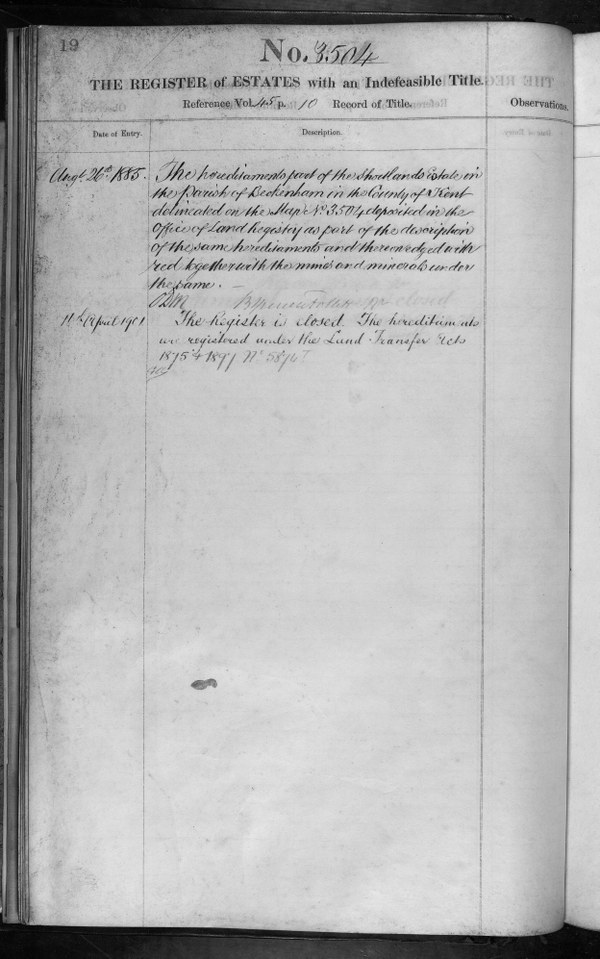 19
No. 3504
THE REGISTER of ESTATES with an Indefeasible Title.
Reference Vol. 45 p. 10 Record of Title.
Observations.
Date of Entry.
Description.
Augt. 26th 1885.
The hereditaments part of the Shortlands Estate in
the Parish of Beckenham in the County of Kent
delineated on the Map No. 3504 deposited in the
Office of Land Registry as part of the description
of the same hereditaments and thereon edged with
red together with the mines and minerals under
the same. —
closed
11th April 1901
The Register is closed. The hereditaments
are registered under the Land Transfer Acts
1875 & 1897 No.